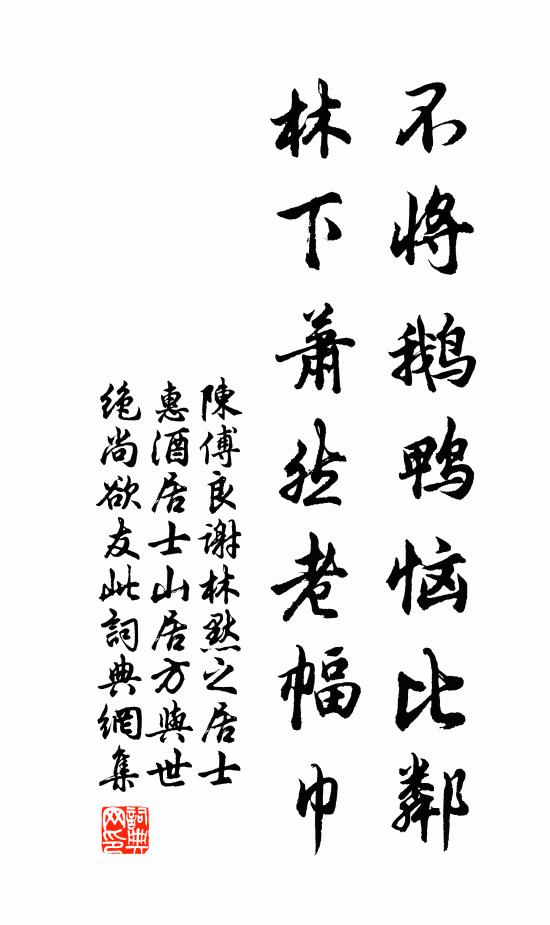 不將鵝鴨惱比鄰
林下蕭然老幅巾
陳傅良謝林黙之居士
惠酒居士山居方與世
絶尚欲友此詞典網集
詞典
网印